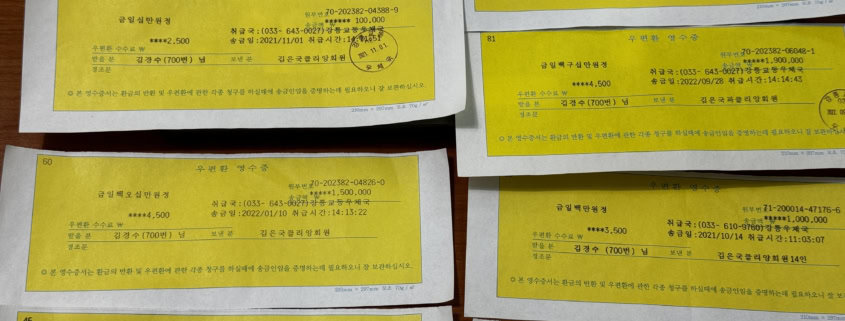 원부번호 70-202382-04388-9
금일십만원정
송금액 ****** 100,000
취급국:(033- 643-0027)강릉교동우체국
****2,500 송금일:2021/11/01 취급시간:14:01:51
우편환 수수료 ₩
받을 분 김경수(700번) 님 보낸 분 김은국클리앙회원
경조문
◎ 본 영수증서는 환급의 반환 및 우편환에 관한 각종 청구를 하실때에 송금인임을 증명하는데 필요하오니 잘 보관하십시오.
81
우편환 영수증
70-202382-06048-1
금일백구십만원정
*****1,900,000
취급국:(033- 643-0027)강릉교동우체국
****4,500 송금일:2022/09/28 취급시간:14:14:43
우편환 수수료 ₩
받을 분 김경수(700번) 님 보낸 분 김은국클리앙회원
경조문
◎ 본 영수증서는 환급의 반환 및 우편환에 관한 각종 청구를 하실때에 송금인임을 증명하는데 필요하오니 잘 보관하십시오
60
우편환 영수증
원부번호 70-202382-04826-0
금일백오십만원정
송금액 *****1,500,000
취급국:(033- 643-0027)강릉교동우체국
****4,500 송금일:2022/01/10 취급시간:14:13:22
우편환 수수료 ₩
받을 분 김경수(700번) 님 보낸 분 김은국클리앙회원
경조문
◎ 본 영수증서는 환급의 반환 및 우편환에 관한 각종 청구를 하실때에 송금인임을 증명하는데 필요하오니 잘 보관하십시오.
우편환 영수증
71-200014-47176-6
금일백만원정
*****1,000,000
취급국:(033- 610-9760)강릉우체국
****3,500 송금일:2021/10/14 취급시간:11:03:07
우편환 수수료 ₩
받을 분 김경수(700번) 님 보낸 분 김은국클리앙회원14인
경조문
◎ 본 영수증서는 환급의 반환 및 우편환에 관한 각종 청구를 하실때에 송금인임을 증명하는데 필요하오니 잘 보